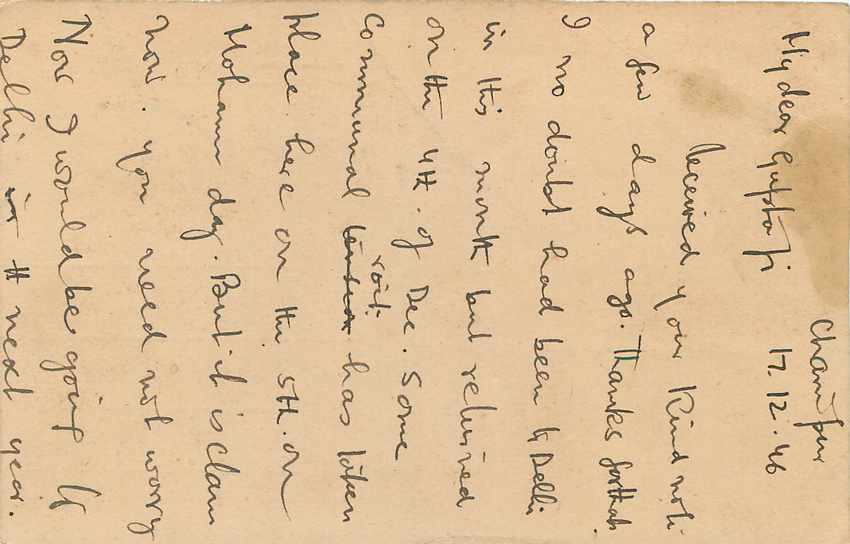 Chanifpur
17.12.46
My dear Guptaji
Received your Kind note
a few days ago. Thanks for that.
I no doubt had been to Delhi
in this month but returned
on the 4th. of Dec. Some
riot
Communal tension has taken
place here on the 5th. on
Moharm day. But it is clam
now. you need not worry
Now I would be going to
Delhi in the next year.